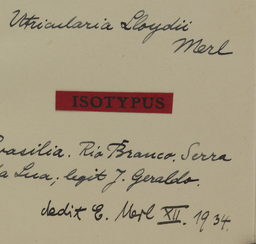 Utricularia Lloydii
Merl
ISOTYPUS
Brasilia. Rio Branco, Serra
da Lua, legit J. Geraldo.
dedit E. Merl XII. 1934.